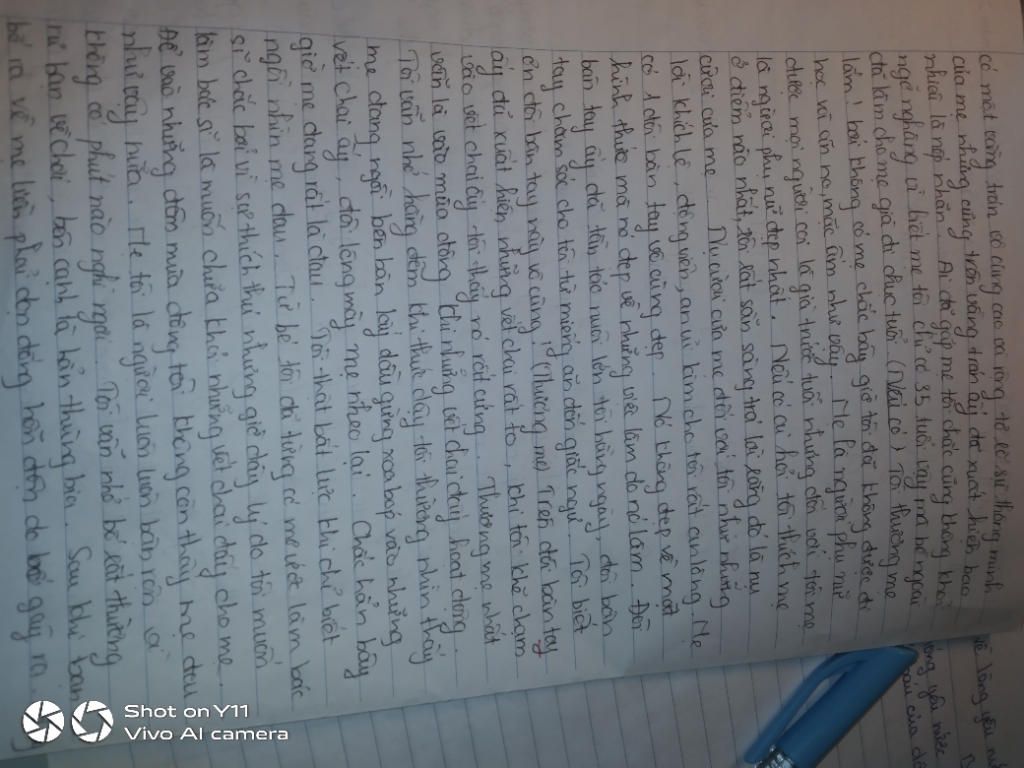 có một vầng trán vô cùng cao và rộng, tỏ lộ sự thông minh
của mẹ nhưng cũng trên vầng trán ấy đã xuất hiện bao
nhiêu là nếp nhăn. Ai đã gặp mẹ tôi chắc cũng không khỏi
ngỡ ngàng vì biết mẹ tôi chỉ có 35 tuổi vậy mà bề ngoài
đã làm cho mẹ già đi chục tuổi. (Nếu có) Tôi thương mẹ
lắm! bởi không có mẹ chắc bây giờ tôi đã không được đi
học và ăn no, mặc ấm như vậy. Mẹ là người phụ nữ
được mọi người coi là già trước tuổi nhưng đối với tôi mẹ
là người phụ nữ đẹp nhất. Nếu có ai hỏi tôi thích mẹ
ở điểm nào nhất, tôi rất sẵn sàng trả lời rằng đó là nụ
cười của mẹ. Nụ cười của mẹ đối với tôi như những
lời khích lệ, động viên, an ủi làm cho tôi rất an lòng. Mẹ
có 1 đôi bàn tay vô cùng đẹp. Nó không đẹp về mặt
hình thức mà nó đẹp về những việc làm do nó làm. Đôi
bàn tay ấy đã tần tảo nuôi lớn tôi hàng ngày, đôi bàn
tay chăm sóc cho tôi từ miếng ăn đến giấc ngủ. Tôi biết
ơn đôi bàn tay này vô cùng. (Thương mẹ) Trên đôi bàn tay
ấy đã xuất hiện những vết chai rất to, khi tôi khẽ chạm
vào vết chai ấy tôi thấy nó rất cứng. Thương mẹ nhất
vẫn là vào mùa đông khi những vết chai ấy hoạt động.
Tôi vẫn nhớ hằng đêm khi thức dậy tôi thường nhìn thấy
mẹ đang ngồi bên bàn lấy dầu gừng xoa bóp vào những
vết chai ấy, đôi lông mày mẹ nheo lại. Chắc hẳn bây
giờ mẹ đang rất là đau. Tôi thật bất lực khi chỉ biết
ngồi nhìn mẹ đau. Từ bé tôi đã từng có mơ ước làm bác
sĩ chắc bởi vì sự thích thú nhưng giờ đây lý do tôi muốn
làm bác sĩ là muốn chữa khỏi những vết chai đấy cho mẹ.
Để vào những đêm mùa đông tôi không còn thấy mẹ đau
như vậy nữa. Mẹ tôi là người luôn luôn bận rộn và
không có phút nào nghỉ ngơi. Tôi vẫn nhớ bố tôi thường
rủ bạn về chơi, bên cạnh là bốn thùng bia. Sau khi bạn
bố ra về mẹ liền phải dọn đống hỗn độn do bố gây ra.